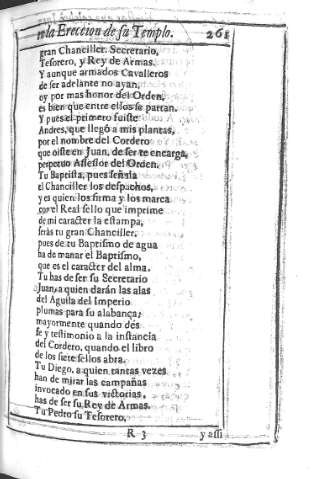 en la Ereccion de su Templo. 261
gran Chanciller, Secretario,
Tesorero, y Rey de Armas.
Y aunque armados Cavalleros
de ser adelante no ayan,
oy por mas honor del Orden,
es bien que entre ellos se partan.
Y pues el primero fuiste
Andres, que llegó a mis plantas,
por el nombre del Cordero
que oiste en Juan, de ser te encarga,
perpetuo Assessor del Orden.
Tu Baptista, pues señala
el Chanciller los despachos,
y es quien los firma y los marca
con el Real sello que imprime
de mi caracter la estampa,
serás tu gran Chanciller,
pues de tu Baptismo de agua
ha de manar el Baptismo,
que es el caracter del alma.
Tu has de ser su Secretario
Juan, a quien darán las alas
del Aguila del Imperio
plumas para su alabança;
mayormente quando dés
fe y testimonio a la instancia
del Cordero, quando el libro
de los siete sellos abra.
Tu Diego, a quien tantas vezes
han de mirar las campañas
invocado en sus victorias,
has de ser su Rey de Armas.
Tu Pedro su Tesorero,
R 3 y assi